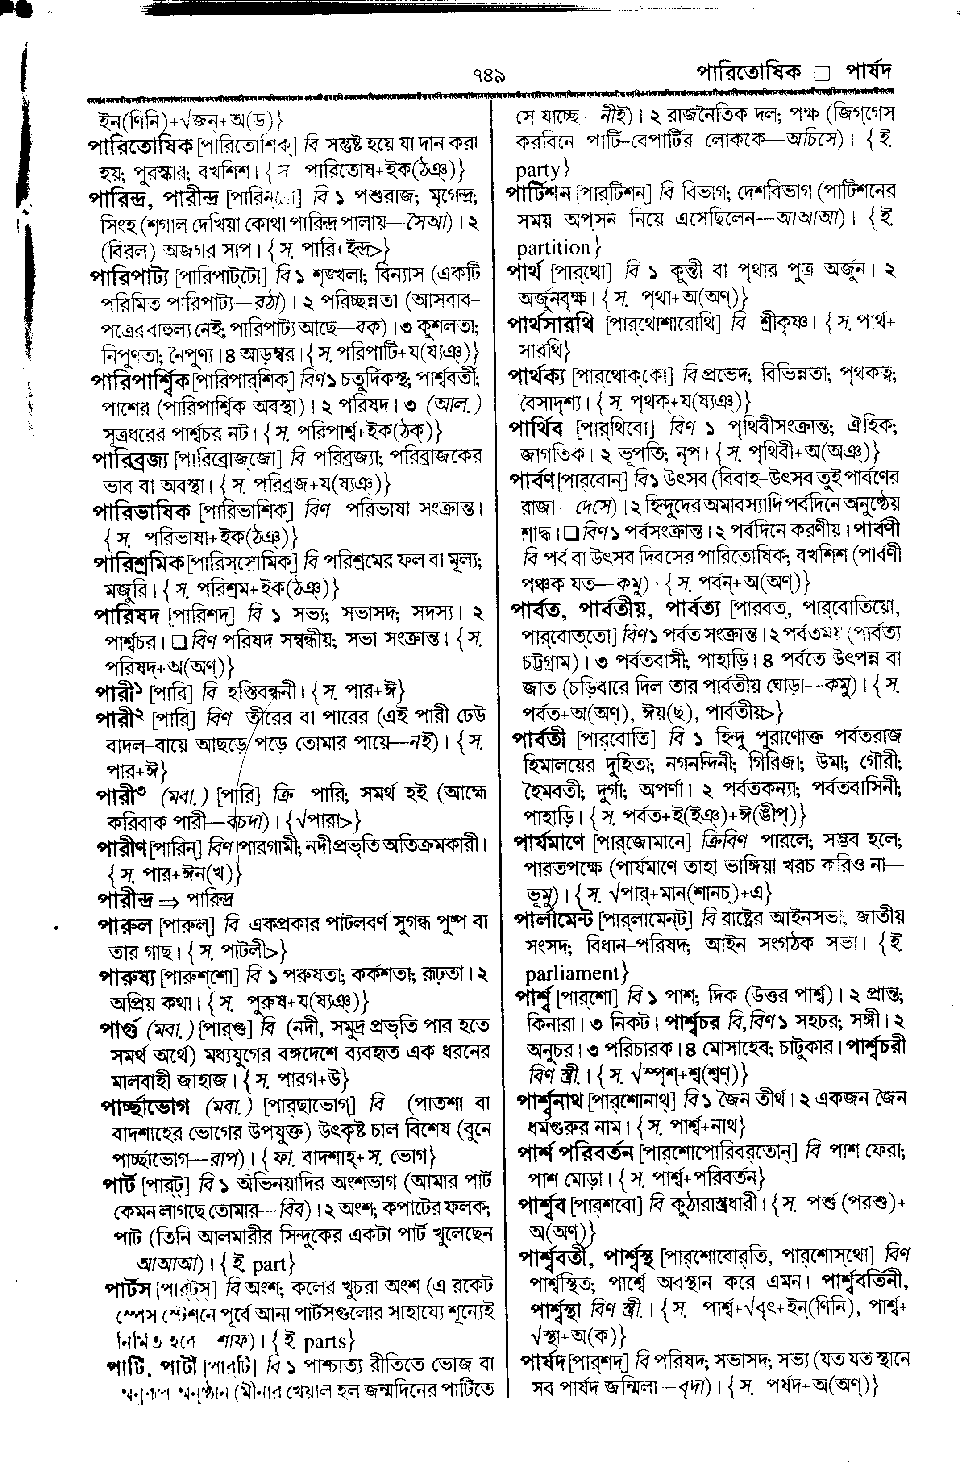 ৭৪৯
পারিতোষিক □ পার্ষদ
ইন(ণিনি)+√জন্+অ(ড)}
পারিতোষিক [পারিতোশিক্] বি সন্তুষ্ট হয়ে যা দান করা
হয়; পুরস্কার; বখশিশ। {স পারিতোষ+ইক(ঠঞ্)}
পারিন্দ্র, পারীন্দ্র [পারিন্‌দ্রো] বি ১ পশুরাজ; মৃগেন্দ্র;
সিংহ (শৃগাল দেখিয়া কোথা পারিন্দ্র পালায়—সৈআ)। ২
(বিরল) অজগর সাপ। {স. পারি+ইন্দ্র>}
পারিপাট্য [পারিপাট্‌টো] বি ১ শৃঙ্খলা; বিন্যাস (একটি
পরিমিত পারিপাট্য—রঠা)। ২ পরিচ্ছন্নতা (আসবাব-
পত্রের বাহুল্য নেই; পারিপাট্য আছে—বক)। ৩ কুশলতা;
নিপুণতা; নৈপুণ্য। ৪ আড়ম্বর। {স. পরিপাটি+য(ষ্যঞ্)}
পারিপার্শ্বিক [পারিপার্‌শিক্] বিণ ১ চতুর্দিকস্থ; পার্শ্ববর্তী;
পাশের (পারিপার্শ্বিক অবস্থা)। ২ পরিষদ। ৩ (আল.)
সূত্রধরের পার্শ্বচর নট। {স. পরিপার্শ্ব+ইক(ঠক্)}
পারিব্রজ্য [পারিব্রোজ্‌জো] বি পরিব্রজ্যা; পরিব্রাজকের
ভাব বা অবস্থা। {স. পরিব্রজ+য(ষ্যঞ্)}
পারিভাষিক [পারিভাশিক] বিণ পরিভাষা সংক্রান্ত।
{স. পরিভাষা+ইক(ঠঞ্)}
পারিশ্রমিক [পারিস্‌স্রোমিক] বি পরিশ্রমের ফল বা মূল্য;
মজুরি। {স. পরিশ্রম+ইক(ঠঞ্)}
পারিষদ [পারিশদ্] বি ১ সভ্য; সভাসদ; সদস্য। ২
পার্শ্বচর। □ বিণ পরিষদ সম্বন্ধীয়; সভা সংক্রান্ত। {স.
পরিষদ্+অ(অণ্)}
পারী১ [পারি] বি হস্তিবন্ধনী। {স. পার+ঈ}
পারী২ [পারি] বিণ তীরের বা পারের (এই পারী ঢেউ
বাদল-বায়ে আছড়ে পড়ে তোমার পায়ে—নই)। {স.
পার+ঈ}
পারী৩ (মবা.) [পারি] ক্রি পারি; সমর্থ হই (আহ্মে
করিবাক পারী—বচদা)। {√পারা>}
পারীণ [পারিন] বিণ পারগামী; নদীপ্রভৃতি অতিক্রমকারী।
{স. পার+ঈন(খ)}
পারীন্দ্র → পারিন্দ্র
পারুল [পারুল্] বি একপ্রকার পাটলবর্ণ সুগন্ধ পুষ্প বা
তার গাছ। {স. পাটলী>}
পারুষ্য [পারুশ্‌শো] বি ১ পরুষতা; কর্কশতা; রূঢ়তা। ২
অপ্রিয় কথা। {স. পুরুষ+য(ষ্যঞ্)}
পার্গু (মবা.) [পার্‌গু] বি (নদী, সমুদ্র প্রভৃতি পার হতে
সমর্থ অর্থে) মধ্যযুগের বঙ্গদেশে ব্যবহৃত এক ধরনের
মালবাহী জাহাজ। {স. পারগ+উ}
পার্চ্ছাভোগ (মবা.) [পার্‌ছাভোগ্] বি (পাতশা বা
বাদশাহের ভোগের উপযুক্ত) উৎকৃষ্ট চাল বিশেষ (বুনে
পার্চ্ছাভোগ—রাপ)। {ফা. বাদশাহ্+স. ভোগ}
পার্ট [পার্‌ট্] বি ১ অভিনয়াদির অংশভাগ (আমার পার্ট
কেমন লাগছে তোমার—বিব)। ২ অংশ; কপাটের ফলক;
পাট (তিনি আলমারীর সিন্দুকের একটা পার্ট খুলেছেন
আআআ)। {ই part}
পার্টস [পার্‌ট্‌স্] বি অংশ; কলের খুচরা অংশ (এ রকেট
স্পেস স্টেশনে পূর্বে আনা পার্টসগুলোর সাহায্যে শূন্যেই
নির্মিত হবে শাফ)। {ই parts}
পার্টি, পার্টী [পার্‌টি] বি ১ পাশ্চাত্য রীতিতে ভোজ বা
অনুষ্ঠান (মীনার খেয়াল হল জন্মদিনের পার্টিতে
সে যাচ্ছে নীই)। ২ রাজনৈতিক দল; পক্ষ (জিগ্‌গেস
করবিনে পার্টি-বেপার্টির লোককে—অচিসে)। {ই.
party}
পার্টিশন [পার্‌টিশন] বি বিভাগ; দেশবিভাগ (পার্টিশনের
সময় অপসন নিয়ে এসেছিলেন—আআআ)। {ই
partition}
পার্থ [পার্‌থো] বি ১ কুন্তী বা পৃথার পুত্র অর্জুন। ২
অর্জুনবৃক্ষ। {স. পৃথা+অ(অণ্)}
পার্থসারথি [পার্‌থোশারোথি] বি শ্রীকৃষ্ণ। {স. পার্থ+
সারথি}
পার্থক্য [পার্‌থোক্‌কো] বি প্রভেদ; বিভিন্নতা; পৃথকত্ব;
বৈসাদৃশ্য। {স. পৃথক্+য(ষ্যঞ্)}
পার্থিব [পার্‌থিবো] বিণ ১ পৃথিবীসংক্রান্ত; ঐহিক;
জাগতিক। ২ ভূপতি; নৃপ। {স. পৃথিবী+অ(অঞ্)}
পার্বণ [পার্‌বোন] বি ১ উৎসব (বিবাহ-উৎসব তুই পার্বণের
রাজা দেসে)। ২ হিন্দুদের অমাবস্যাদি পর্বদিনে অনুষ্ঠেয়
শ্রাদ্ধ। □ বিণ ১ পর্বসংক্রান্ত। ২ পর্বদিনে করণীয়। পার্বণী
বি পর্ব বা উৎসব দিবসের পারিতোষিক; বখশিশ (পার্বণী
পঞ্চক যত—কমু) {স. পর্বন্+অ(অণ্)}
পার্বত, পার্বতীয়, পার্বত্য [পার্‌বত, পার্‌বোতিয়ো,
পার্‌বোত্‌তো] বিণ ১ পর্বত সংক্রান্ত। ২ পর্বতময় (পার্বত্য
চট্টগ্রাম)। ৩ পর্বতবাসী; পাহাড়ি। ৪ পর্বতে উৎপন্ন বা
জাত (চড়িবারে দিল তার পার্বতীয় ঘোড়া—কমু)। {স.
পর্বত+অ(অণ্), ঈয়(ছ), পার্বতীয়>}
পার্বতী [পার্‌বোতি] বি ১ হিন্দু পুরাণোক্ত পর্বতরাজ
হিমালয়ের দুহিতা; নগনন্দিনী; গিরিজা; উমা; গৌরী;
হৈমবতী; দুর্গা; অপর্ণা। ২ পর্বতকন্যা; পর্বতবাসিনী;
পাহাড়ি। {স. পর্বত+ই(ইঞ্)+ঈ(ঙীপ্)}
পার্যমাণে [পার্‌জোমানে] ক্রিবিণ পারলে; সম্ভব হলে;
পারতপক্ষে (পার্যমাণে তাহা ভাঙ্গিয়া খরচ করিও না—
ভূমু)। {স. √পার্+মান(শানচ্)+এ}
পার্লামেন্ট [পার্‌লামেন্‌ট্] বি রাষ্ট্রের আইনসভা, জাতীয়
সংসদ; বিধান-পরিষদ; আইন সংগঠক সভা। {ই
parliament}
পার্শ্ব [পার্‌শো] বি ১ পাশ; দিক (উত্তর পার্শ্ব)। ২ প্রান্ত;
কিনারা। ৩ নিকট। পার্শ্বচর বি,বিণ ১ সহচর; সঙ্গী। ২
অনুচর। ৩ পরিচারক। ৪ মোসাহেব; চাটুকার। পার্শ্বচরী
বিণ স্ত্রী.। {স. √স্পৃশ্+শ্ব(শ্বণ্)}
পার্শ্বনাথ [পার্‌শোনাথ্] বি ১ জৈন তীর্থ। ২ একজন জৈন
ধর্মগুরুর নাম। {স. পার্শ্ব+নাথ}
পার্শ্ব পরিবর্তন [পার্‌শোপোরিবর্‌তোন্] বি পাশ ফেরা;
পাশ মোড়া। {স. পার্শ্ব+পরিবর্তন}
পার্শ্বব [পার্‌শবো] বি কুঠারাস্ত্রধারী। {স. পর্শু (পরশু)+
অ(অণ্)}
পার্শ্ববর্তী, পার্শ্বস্থ [পার্‌শোবোর্‌তি, পার্‌শোস্‌থো] বিণ
পার্শ্বস্থিত; পার্শ্বে অবস্থান করে এমন। পার্শ্ববর্তিনী,
পার্শ্বস্থা বিণ স্ত্রী.। {স. পার্শ্ব+√বৃৎ+ইন্(ণিনি), পার্শ্ব+
√স্থা+অ(ক)}
পার্ষদ [পার্‌শদ্] বি পরিষদ; সভাসদ; সভ্য (যত যত স্থানে
সব পার্ষদ জন্মিলা—বৃদা)। {স. পর্ষদ+অ(অণ্)}